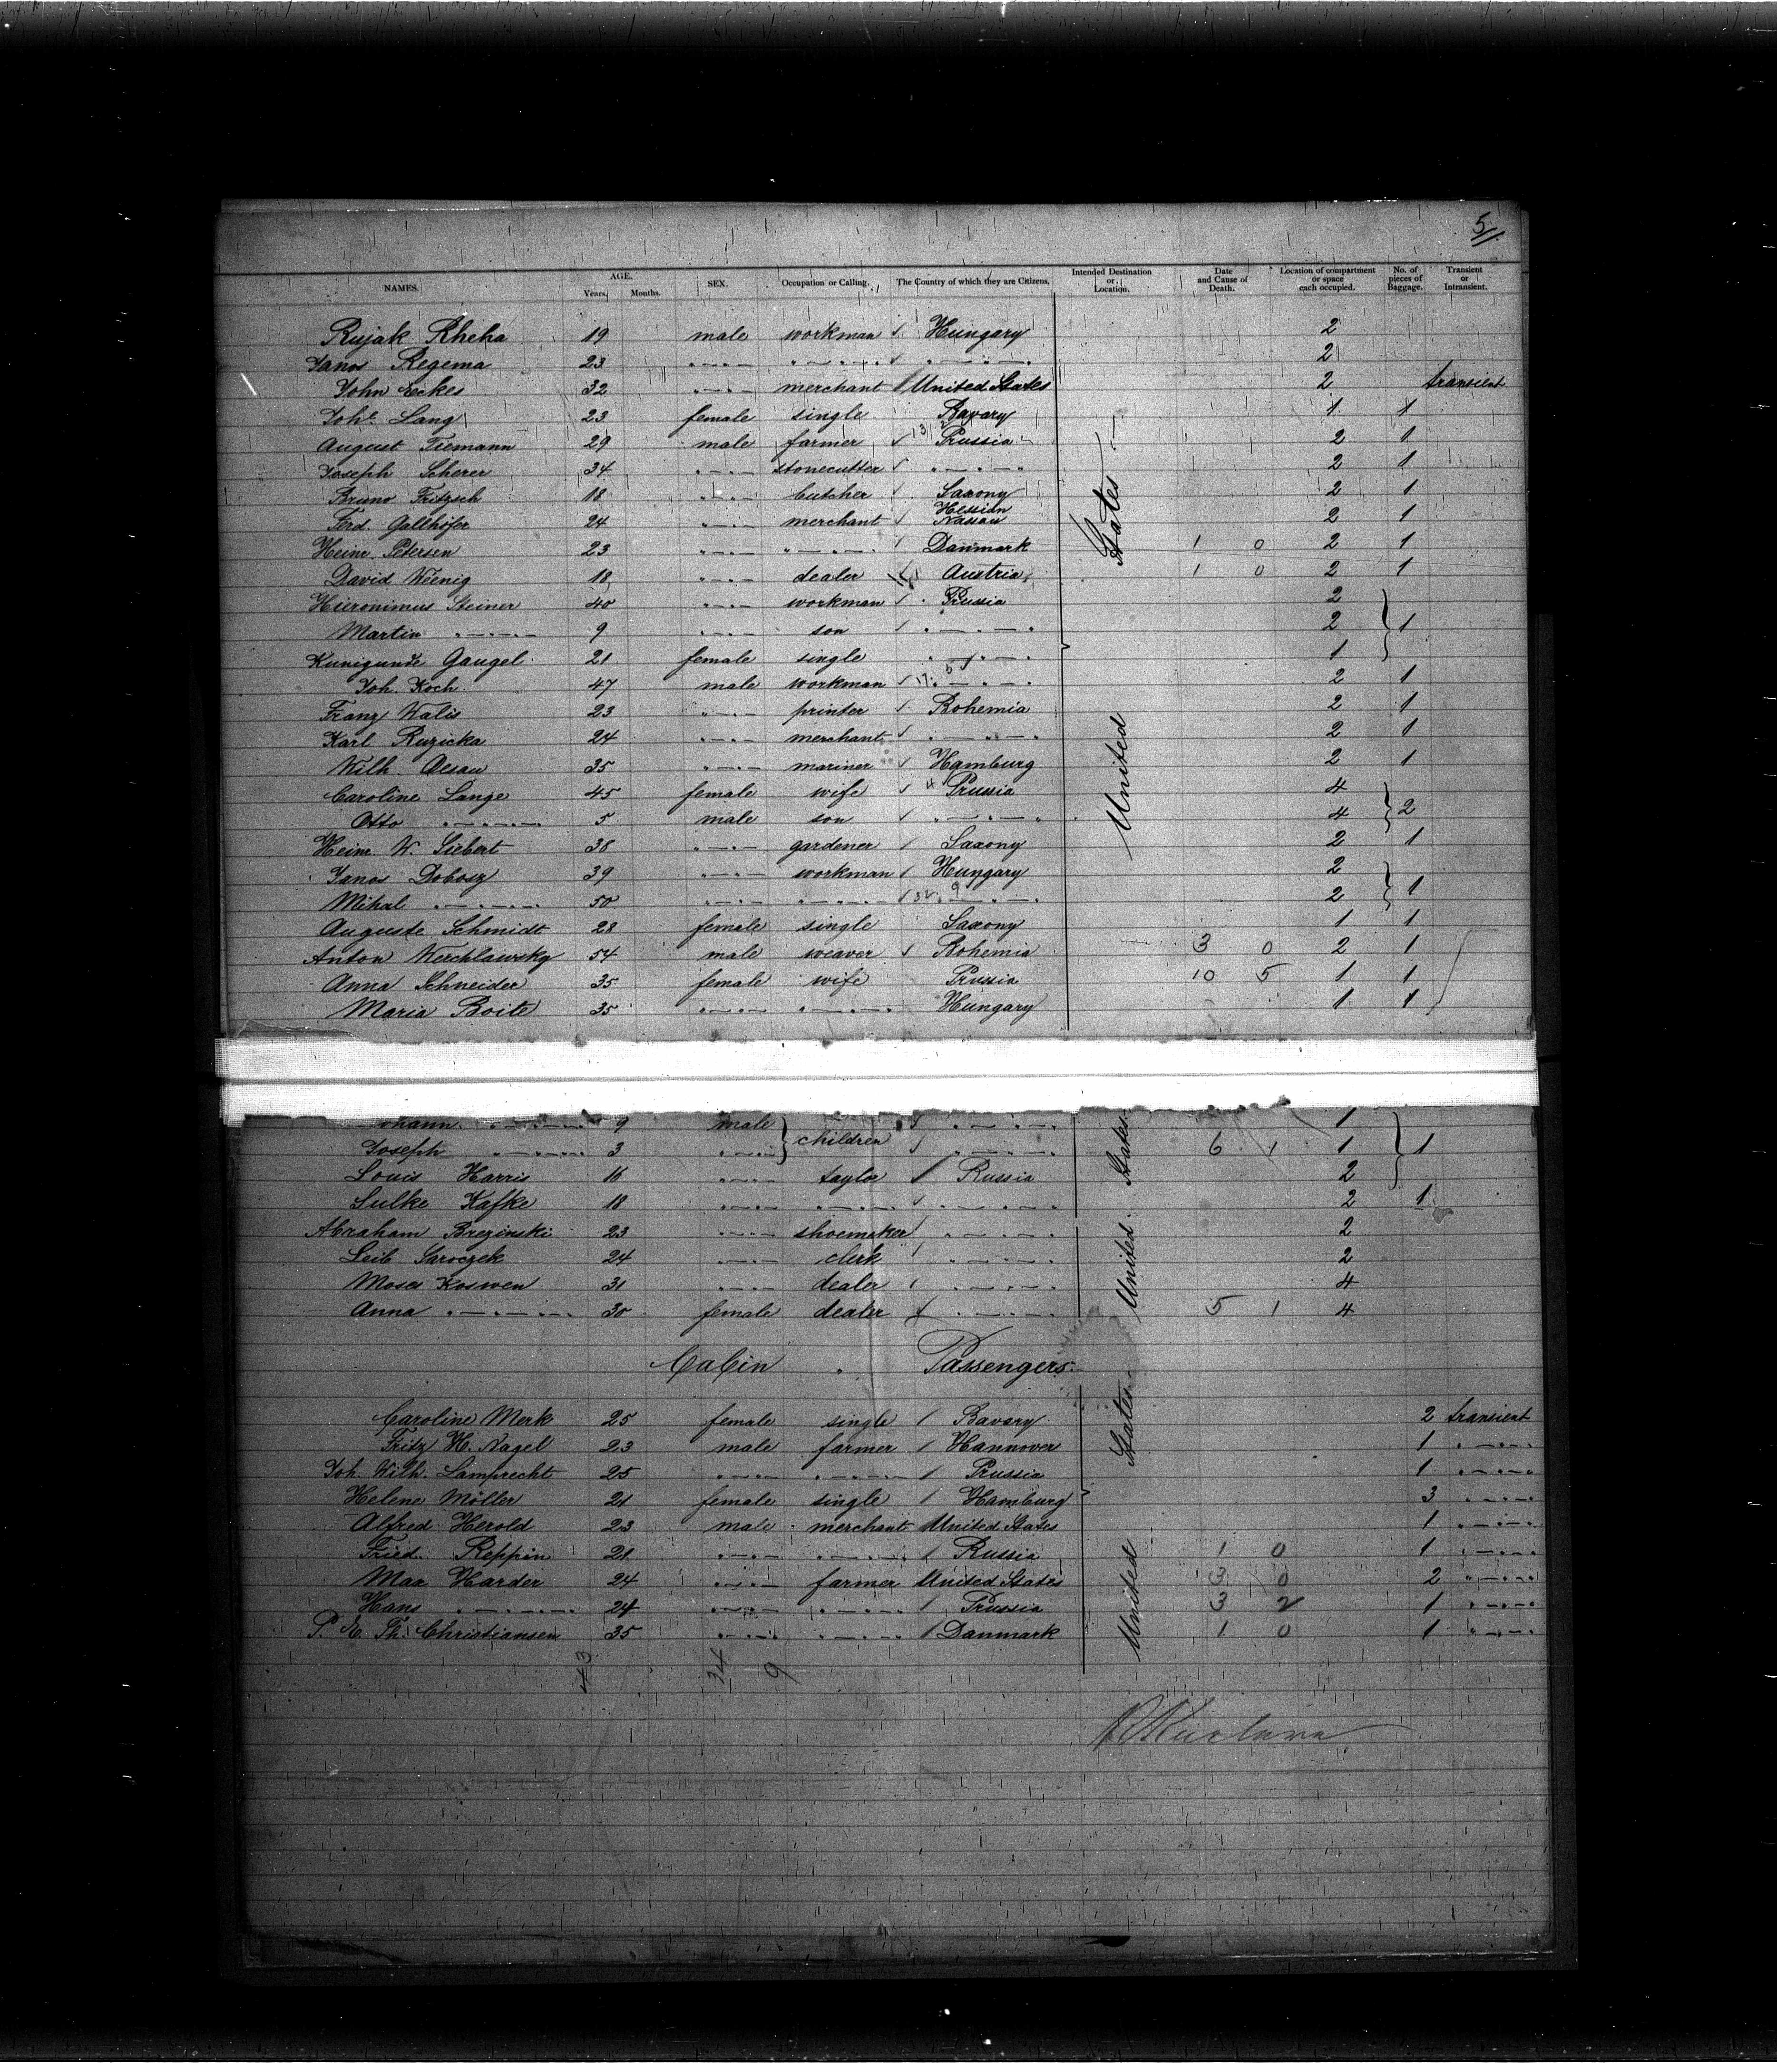 5
NAMES. AGE. Years, Months. SEX. Occupation or Calling. The Country of which they are Citizens, Intended Destination or Location. Date and Cause of Death. Location of compartment or space each occupied. No. of pieces of Baggage. Transient or Intransient.
Rujak Rheha 19 male workman Hungary 2
Janos Regema 23 " " " 2
John Eckes 32 " merchant United States 2 transient
Joh. Lang 23 female single Bavary 1 1
August Tiemann 29 male farmer Prussia 2 1
Joseph Scherer 34 " stonecutter " 2 1
Bruno Fritzsch 18 " butcher Saxony 2 1
Ferd. Gallhöfer 24 " merchant Hessian Nassau 2 1
Heinr. Petersen 23 " " Danmark 1 0 2 1
David Weenig 18 " dealer Austria 1 0 2 1
Hieronimus Steiner 40 " workman Prussia 2
Martin " 9 " son " 2 1
Kunigunde Gaugel 21 female single " 1
Joh. Koch 47 male workman " 2 1
Franz Walis 23 " printer Bohemia 2 1
Karl Ruzicka 24 " merchant " 2 1
Wilh. Olsau 35 " mariner Hamburg 2 1
Caroline Lange 45 female wife Prussia 4
Otto " 5 male son " 4 2
Heinr. W. Siebert 38 " gardener Saxony 2 1
Janos Dobosz 39 " workman Hungary 2
Mihal " 50 " " " 2 1
Auguste Schmidt 28 female single Saxony 1 1
Anton Werchlawsky 54 male weaver Bohemia 3 0 2 1
Anna Schneider 35 female wife Prussia 10 5 1 1
Maria Boite 35 " " Hungary 1 1
United States
ohann " 9 male " 1
Joseph " 3 " children " 6 1 1 1
Louis Harris 16 " taylor Russia 2
Sulke Kafke 18 " " " 2 1
Abraham Brezinski 23 " shoemaker " 2
Leib Saroczek 24 " clerk " 2
Moses Koswen 31 " dealer " 4
Anna " 30 female dealer " 5 1 4
United States
Cabin Passengers
Caroline Merk 25 female single Bavary 2 transient
Fritz H. Nagel 23 male farmer Hannover 1 "
Joh. Wilh. Lamprecht 25 " " Prussia 1 "
Helene Möller 21 female single Hamburg 3 "
Alfred Herold 23 male merchant United States 1 "
Fried. Reppin 21 " " Russia 1 0 1 "
Max Harder 24 " farmer United States 3 0 2 "
Hans " 24 " " Prussia 3 2 1 "
P. A. Th. Christiansen 35 " " Danmark 1 0 1 "
United States
43 34 9